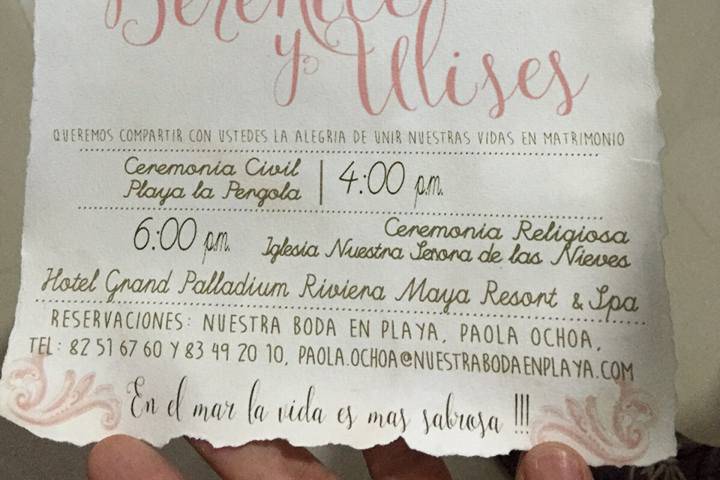 Berenice
y Ulises
QUEREMOS COMPARTIR CON USTEDES LA ALEGRIA DE UNIR NUESTRAS VIDAS EN MATRIMONIO
Ceremonia Civil
Playa la Pergola
4:00 p.m.
6:00 p.m.
Ceremonia Religiosa
Iglesia Nuestra Senora de las Nieves
Hotel Grand Palladium Riviera Maya Resort & Spa
RESERVACIONES: NUESTRA BODA EN PLAYA, PAOLA OCHOA,
TEL: 82 51 67 60 Y 83 49 20 10, PAOLA.OCHOA@NUESTRABODAENPLAYA.COM
En el mar la vida es mas sabrosa !!!